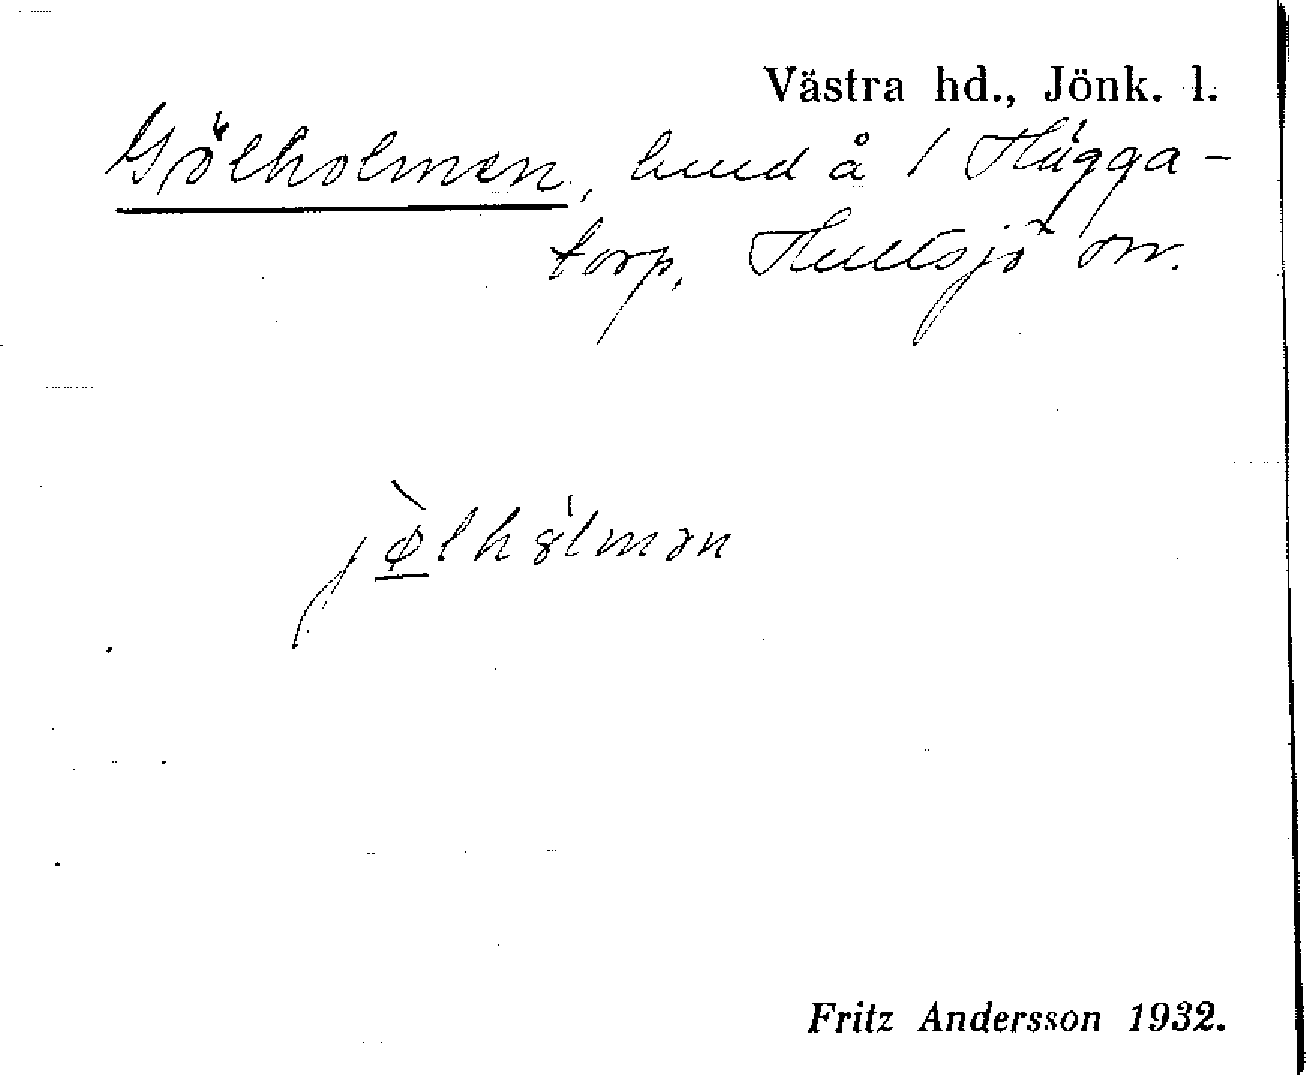 Västra hd., Jönk. l.
Gölholmen, lund å 1 Hägga-
torp, Hultsjö sn.
jø̀lhålmən
Fritz Andersson 1932.